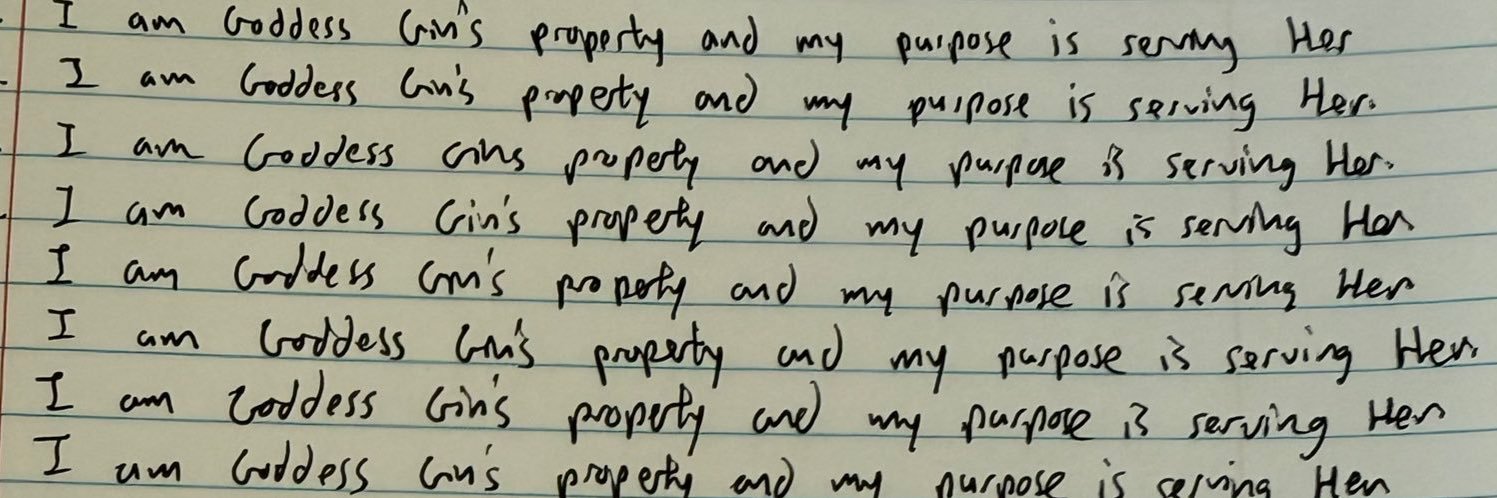 I am Goddess Gin's property and my purpose is serving Her
I am Goddess Gin's property and my purpose is serving Her.
I am Goddess Gins property and my purpose is serving Her.
I am Goddess Gin's property and my purpose is serving Her
I am Goddess Gin's property and my purpose is serving Her
I am Goddess Gin's property and my purpose is serving Her.
I am Goddess Gin's property and my purpose is serving Her
I am Goddess Gin's property and my purpose is serving Her